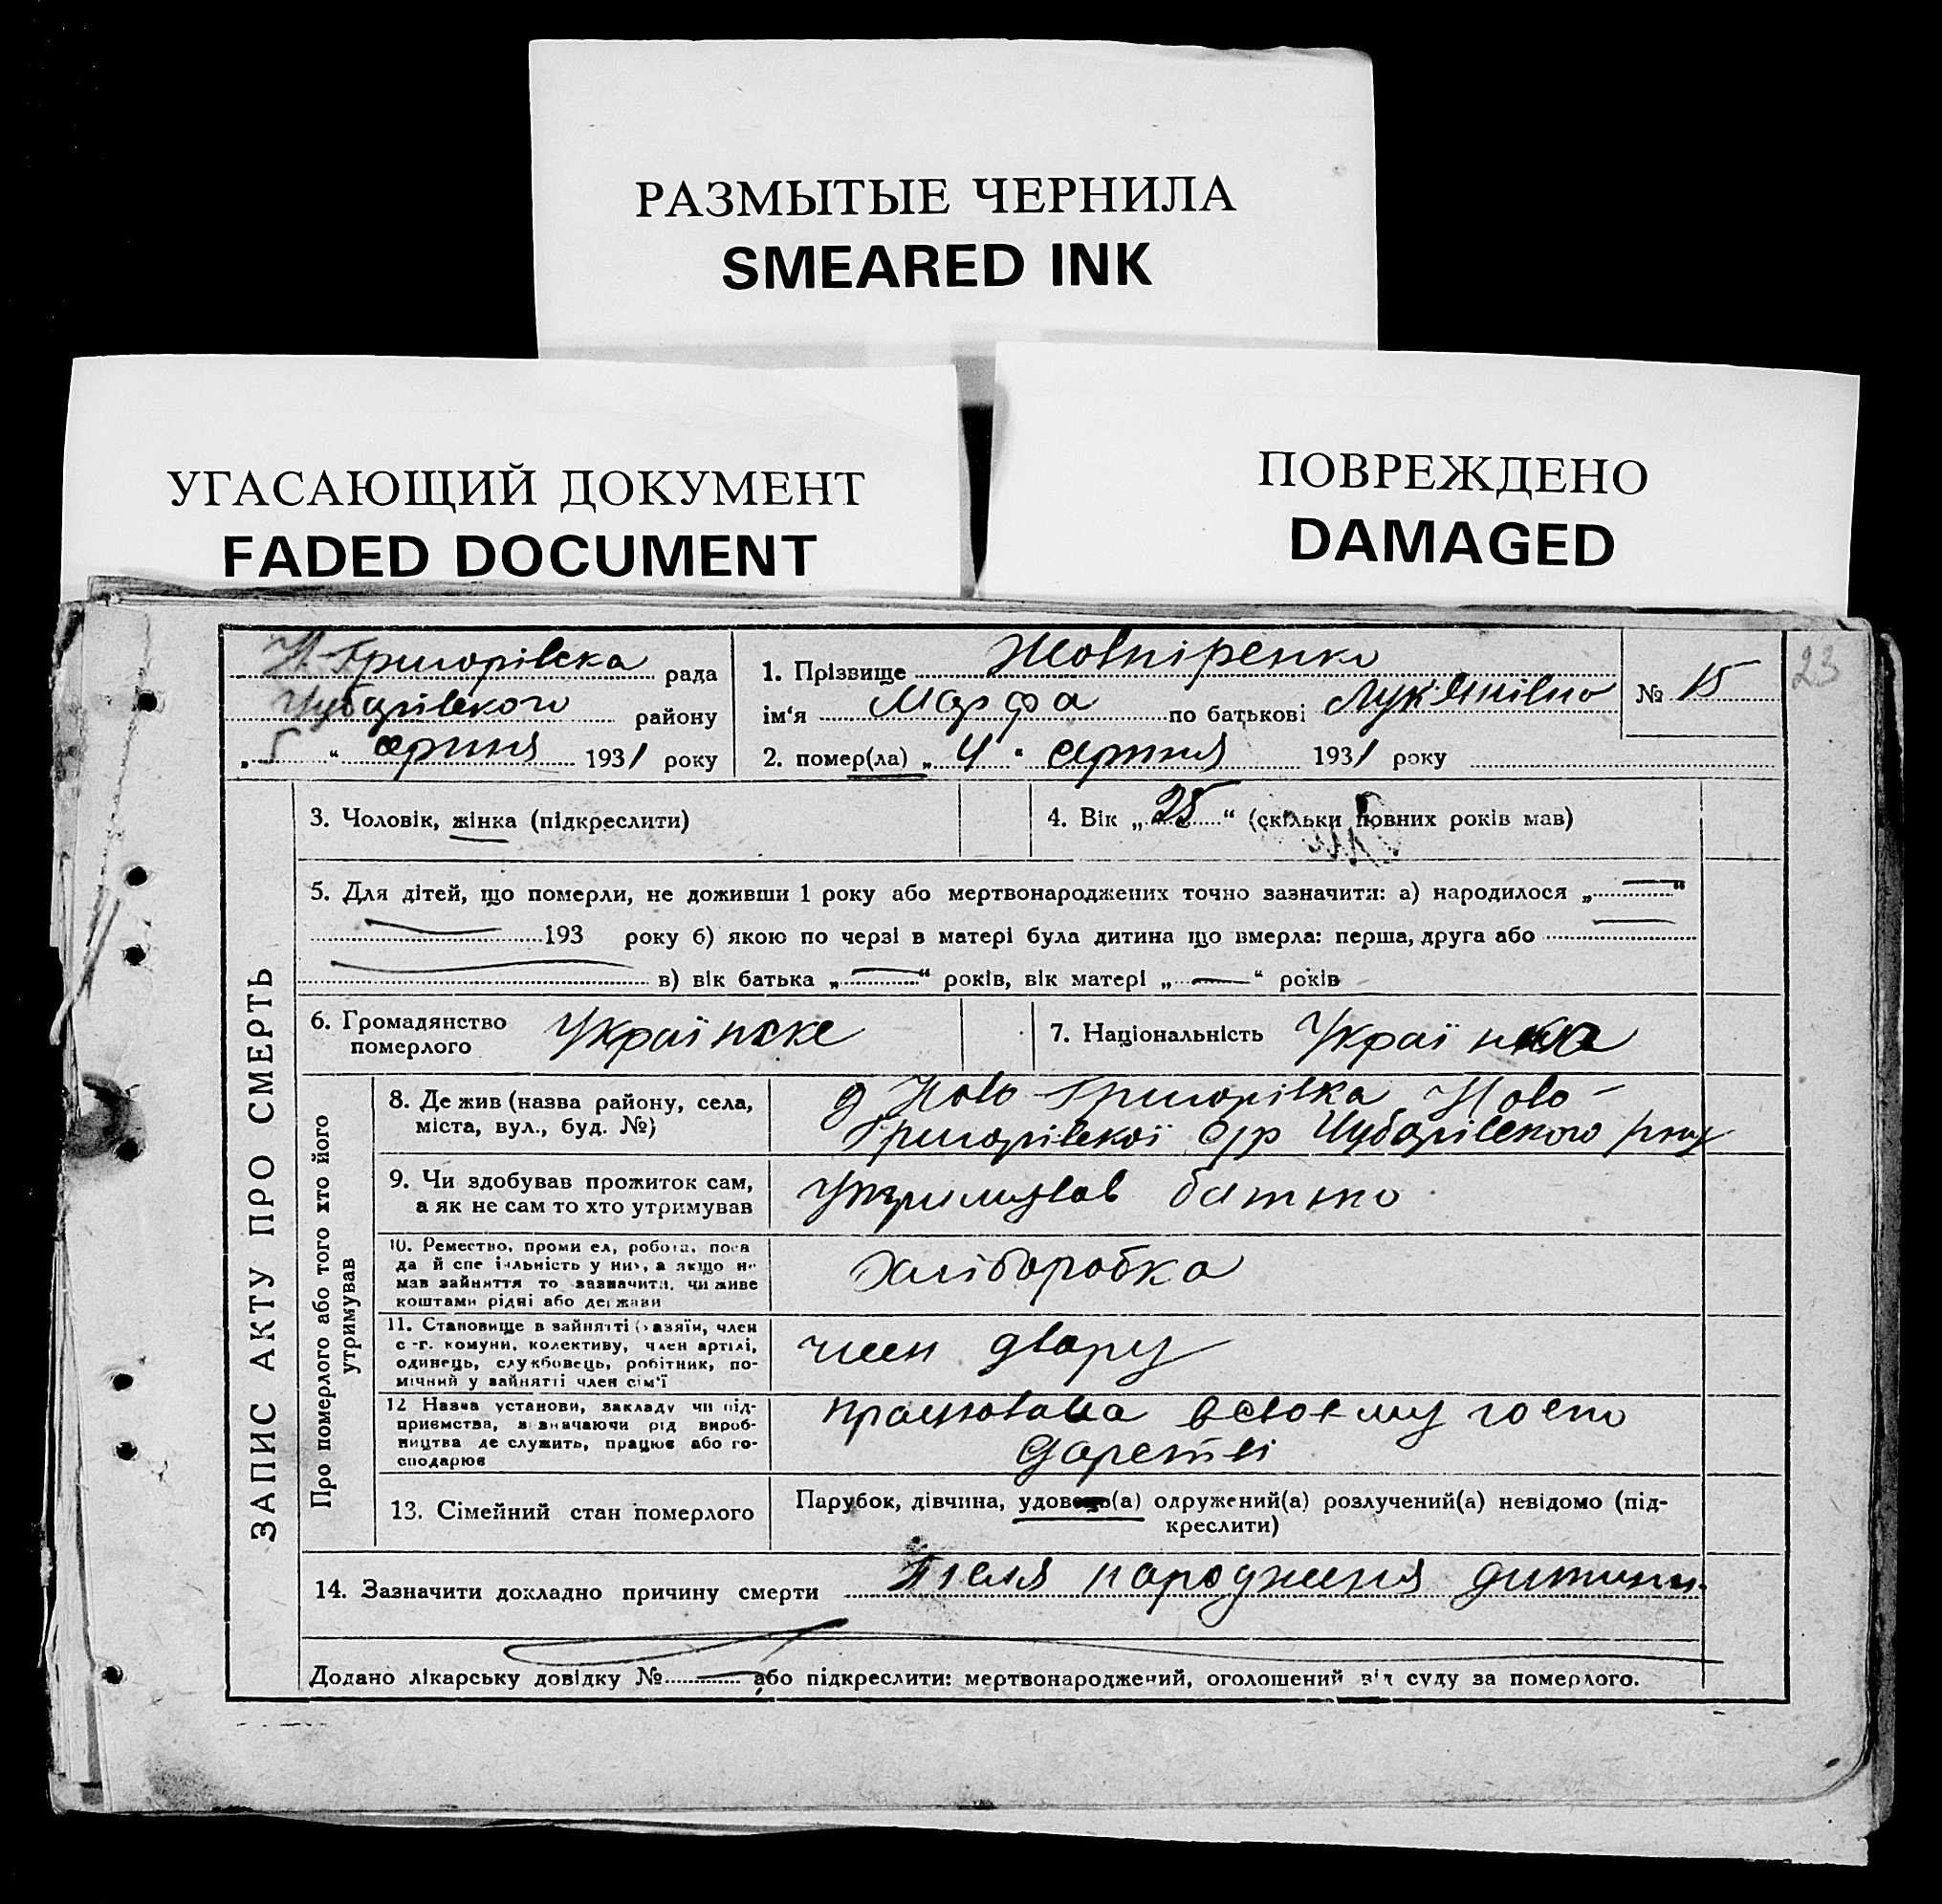 РАЗМЫТЫЕ ЧЕРНИЛА
SMEARED INK
УГАСАЮЩИЙ ДОКУМЕНТ
FADED DOCUMENT
ПОВРЕЖДЕНО
DAMAGED
23
Н-Григорівска рада
Чубарівського району
„5“ серпня 1931 року
1. Прізвище Жовніренко
ім'я Марфа по батькові Лук'янівно
2. помер(ла) „4“ серпня 1931 року
№ 15
ЗАПИС АКТУ ПРО СМЕРТЬ
3. Чоловік, жінка (підкреслити)
4. Вік „25“ (скільки повних років мав)
5. Для дітей, що померли, не доживши 1 року або мертвонароджених точно зазначити: а) народилося „—“
193 року б) якою по черзі в матері була дитина що вмерла: перша, друга або
в) вік батька „—“ років, вік матері „—“ років
6. Громадянство
померлого
Українске
7. Національність Українка
Про померлого або того хто його
утримував
8. Де жив (назва району, села,
міста, вул., буд. №)
Ново-Григорівка Ново-
Григорівскої с/р Чубарівского р-ну
9. Чи здобував прожиток сам,
а як не сам то хто утримував
Утримував батько
10. Ремество, проми ел, робота, поса
да й спе іяльність у них, а якщо не
мав зайняття то зазначити, чи живе
коштами рідні або держави
Хліборобка
11. Становище в зайнятті (хазяїн, член
с-г. комуни, колективу, член артілі,
одинець, службовець, робітник, по-
мічний у зайнятті член сім'ї
член двору
12 Назва установи, закладу чи під-
приємства, зазначаючи рід вироб-
ництва де служить, працює або го-
сподарює
працювала всвоему госпо
дарстві
13. Сімейний стан померлого
Парубок, дівчина, удовець(а) одружений(а) розлучений(а) невідомо (під-
креслити)
14. Зазначити докладно причину смерти Після народженя дитини
Додано лікарську довідку №— або підкреслити: мертвонароджений, оголошений від суду за померлого.